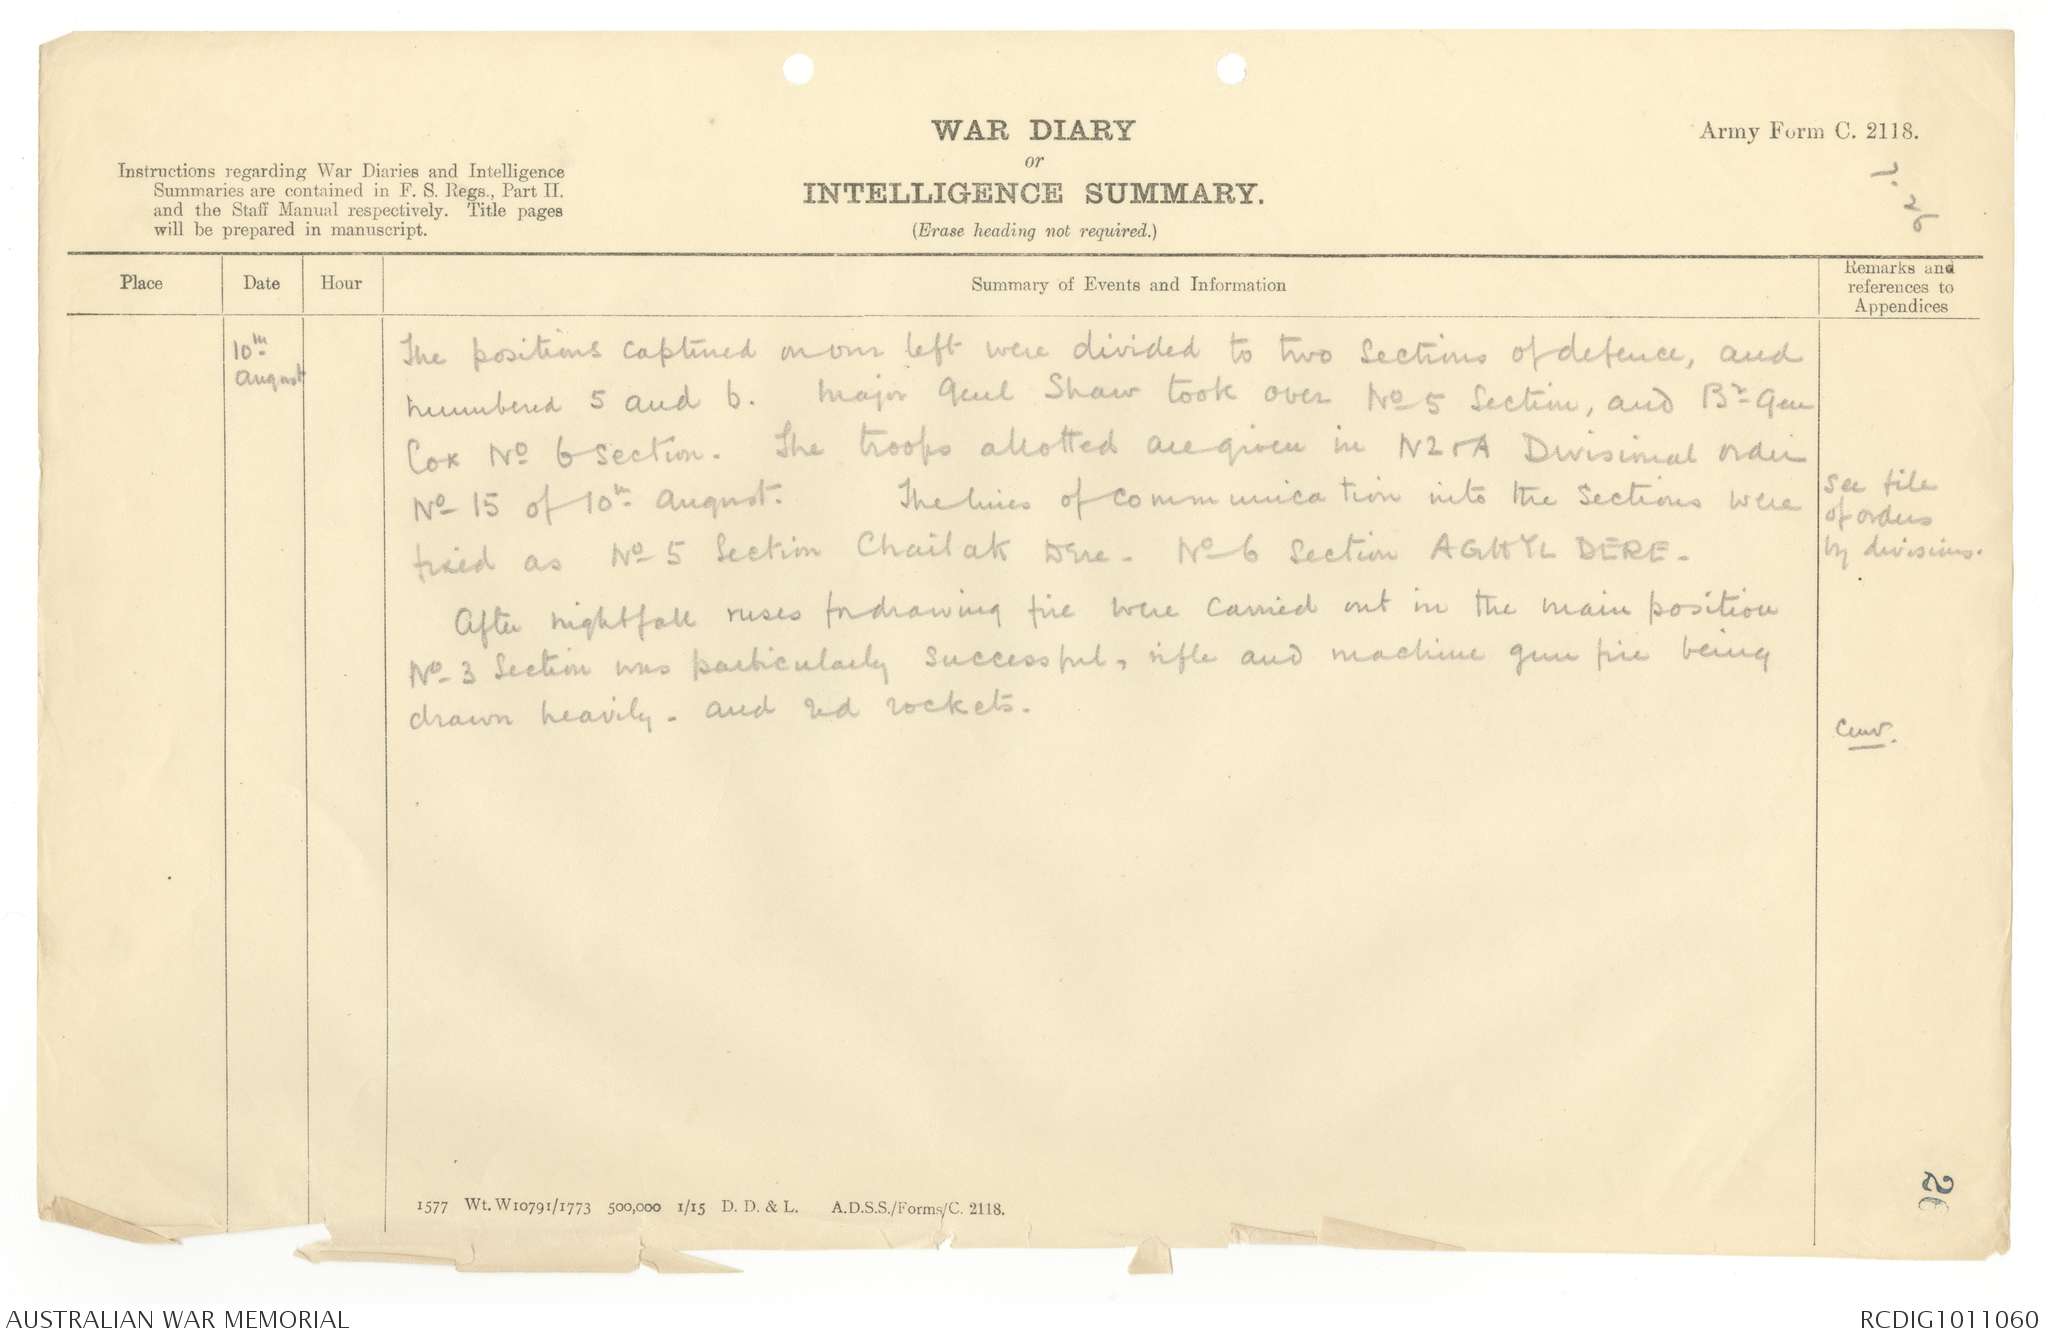 WAR DIARY
or
INTELLIGENCE SUMMARY.
(Erase heading not required.)
Army Form C. 2118.
Instructions regarding War Diaries and Intelligence
Summaries are contained in F. S. Regs., Part II.
and the Staff Manual respectively. Title pages
will be prepared in manuscript.
Place Date Hour Summary of Events and Information Remarks and
references to
Appendices
10th
August
The positions captured on our left were divided to two sections of defence, and
numbered 5 and 6. Major Genl Shaw took over No 5 Section, and Br Gen
Cox No 6 Section. The troops allotted are given in NZ & A Divisional order
No 15 of 10th August. The lines of communication into the sections were
fixed as No 5 Section Chailak Dere - No 6 Section AGHYL DERE -
see file
of orders
by divisions.
After nightfall ruses for drawing fire were carried out in the main position
No 3 Section was particularly successful, rifle and machine gun fire being
drawn heavily - and red rockets.
1577 Wt. W10791/1773 500,000 1/15 D. D. & L. A.D.S.S./Forms/C. 2118.
AUSTRALIAN WAR MEMORIAL
RCDIG1011060